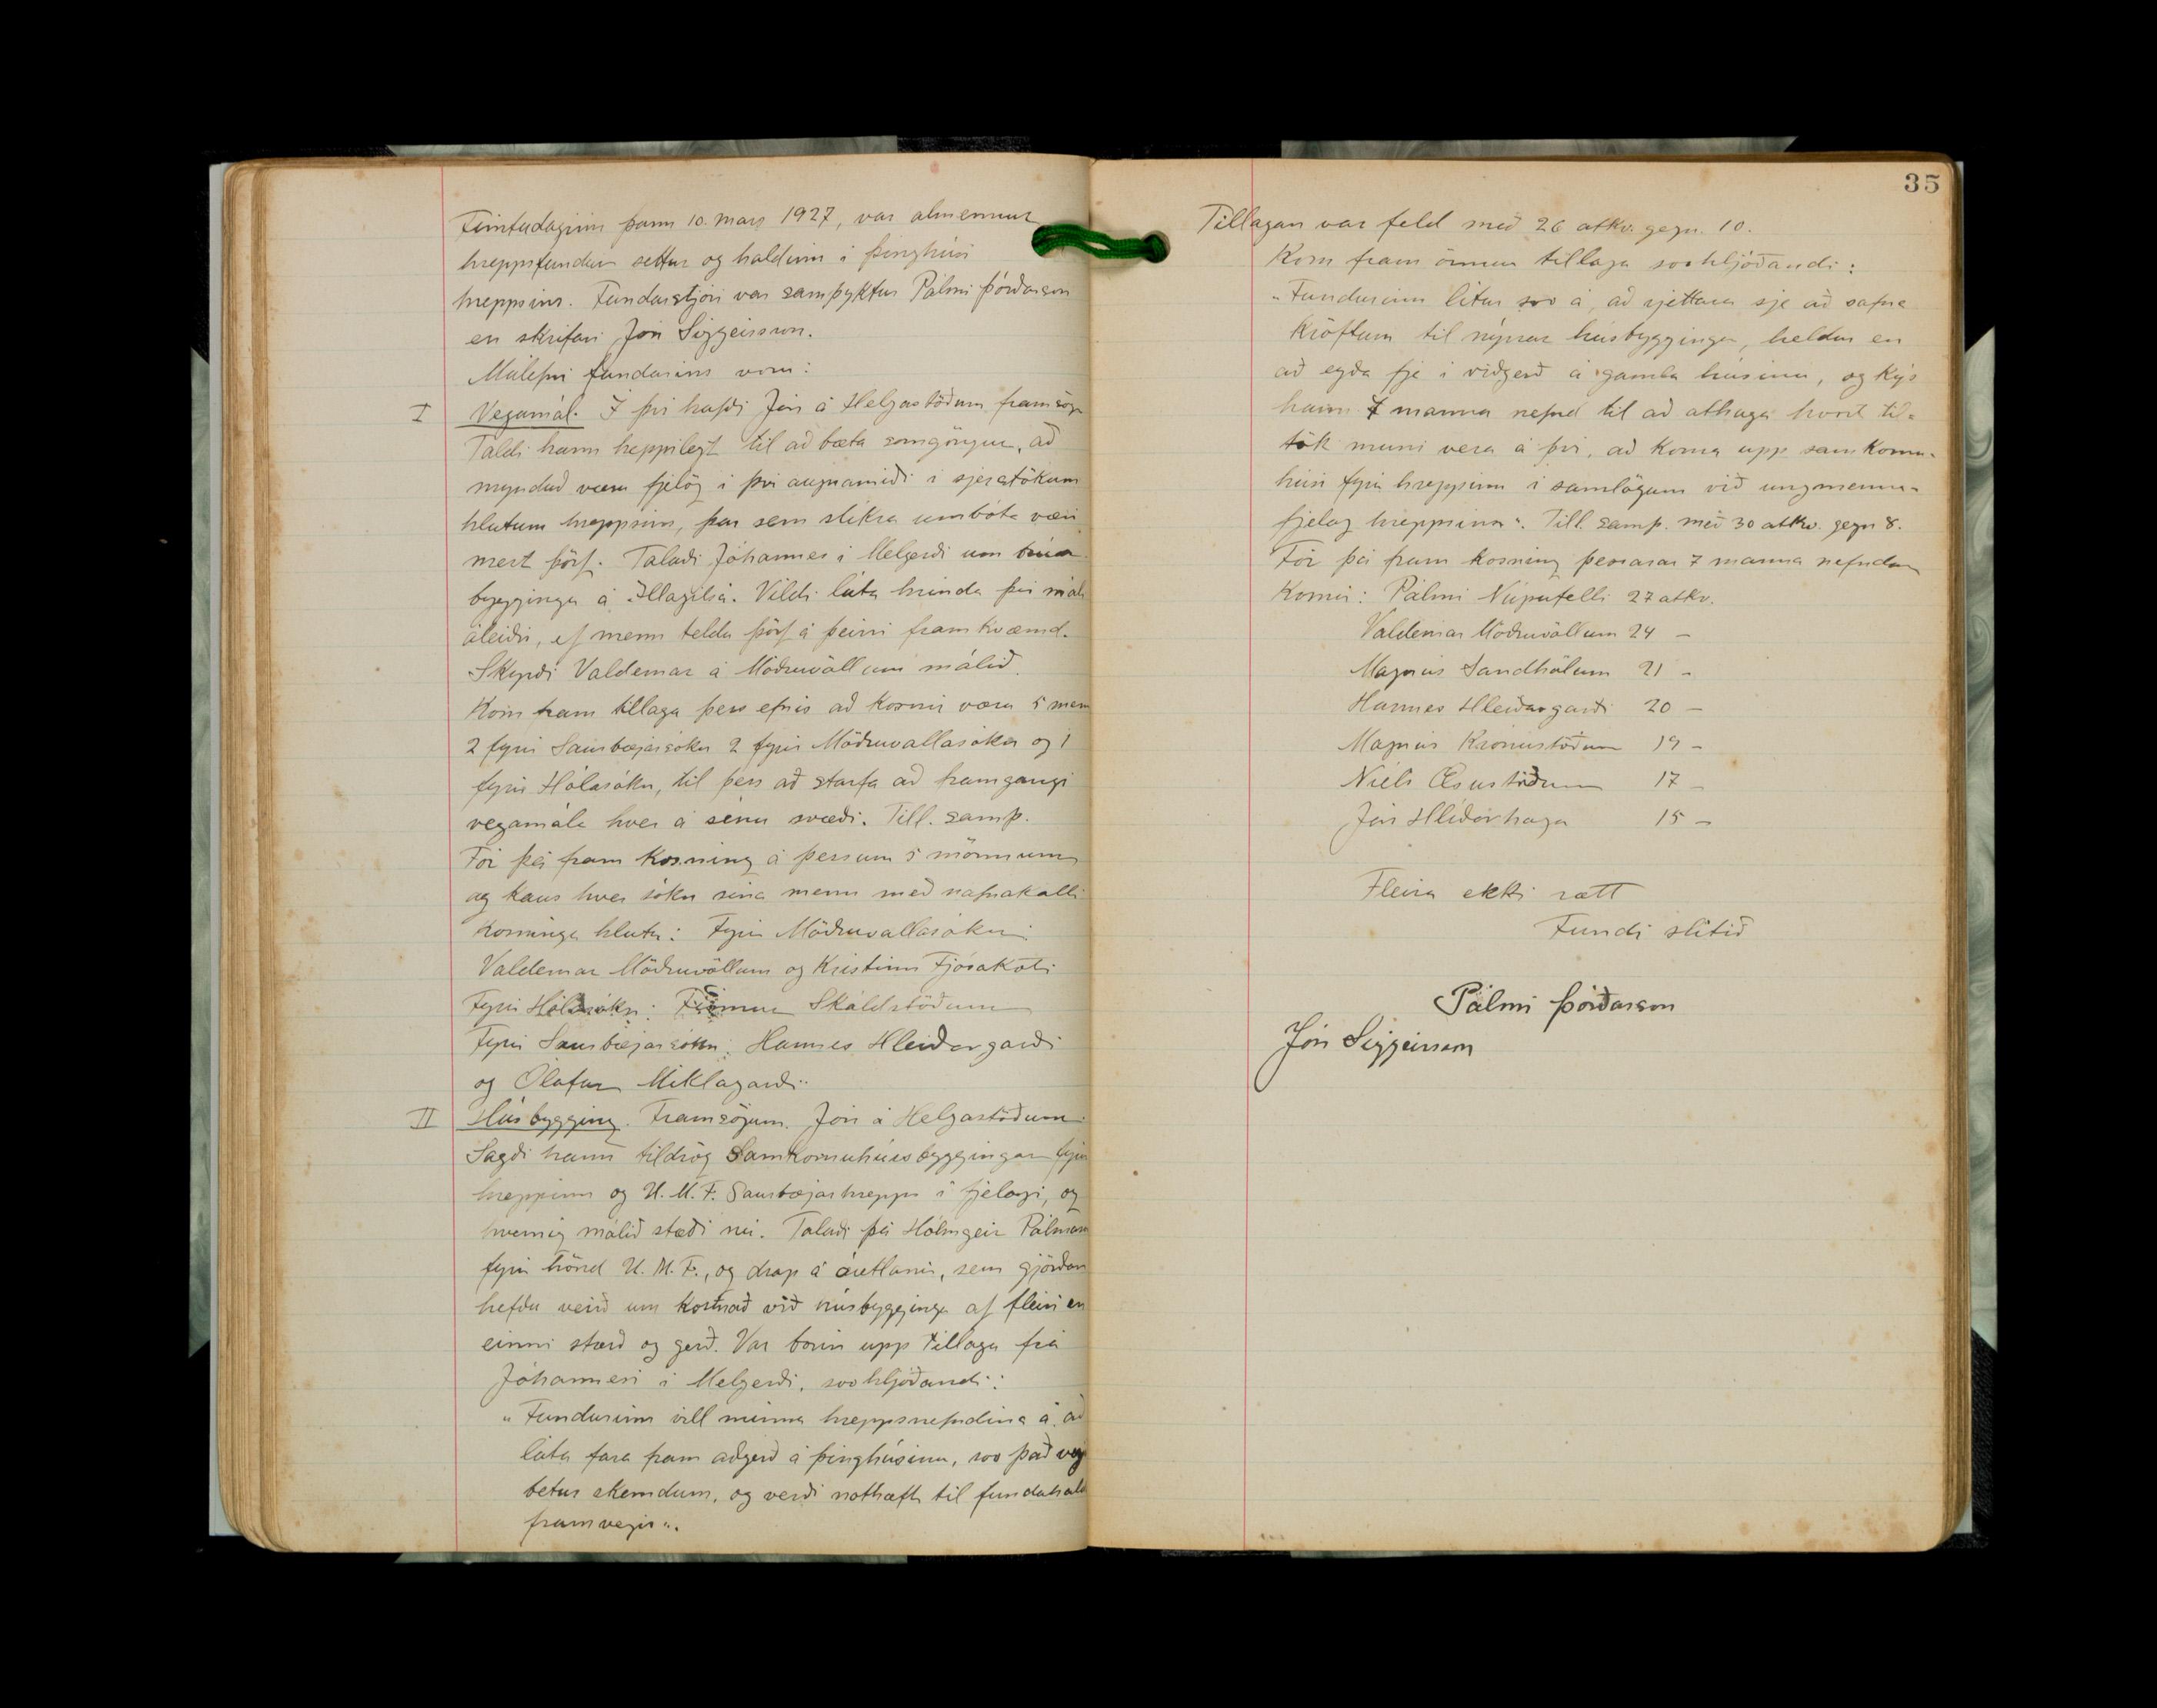 Fimtudaginn þann 10. mars 1927, var almennur
hreppsfundur settur og haldinn i þinghúsi
hreppsins. Fundarstjóri var samþyktur Pálmi Þórðarson
en skrifari Jón Siggeirsson.
Málefni fundarins voru:
I Vegamál. I þvi hafði Jón á Helgastöðum framsögu
Taldi hann heppilegt til að bæta samgöngur, að
mynduð væru fjelög i þvi augnamiði i sjerstökum
hlutum hreppsins, þar sem slikra umbóta væri
mest þörf. Talaði Jóhannes i Melgerði um brúar
byggingu á Illagilsá. Vildi láta hrinda þvi máli
áleiðis, ef menn teldu þörf á þeirri framkvæmd.
Skyrði Valdemar á Möðruvöllum málið.
Kom fram tillaga þess efnis að kosnir væru 5 menn
2 fyrir Saurbæjarsókn 2 fyrir Möðruvallasókn og 1
fyrir Hólasókn, til þess að starfa að framgangi
vegamála hver á sinu svæði. Till. samþ.
Fór þá fram kosning á þessum 5 mönnum
og kaus hver sókn sina menn með nafnakalli
Kosningu hlutu: Fyrir Möðruvallasókn:
Valdemar Möðruvöllum og Kristinn Fjósakoti
Fyrir Hólasókn: Skáldstöðum
Fyrir Saurbæjarsókn: Hannes Hleiðargarði
og Ólafur Miklagarði.
II Húsbygging. Framsögum. Jón á Helgastöðum
Sagði hann tildrög Samkomuhúsbyggingar fyrir
hreppinn og U.M.F. Saurbæjarhrepps i fjelagi, og
hvernig málið stæði nú. Talaði þá Hólmgeir Pálmason
fyrir hönd U.M.F., og drap á áætlanir, sem gjörðar
hefðu verið um kostnað við húsbyggingu af fleiri en
einni stærð og gerð. Var borin upp tillaga frá
Jóhannesi i Melgerði, svohljóðandi:
„Fundurinn vill minna hreppsnefndina á, að
láta fara fram aðgerð á þinghúsinu, svo það verji
betur skemdum, og verði nothæft til fundahalda
framvegis“.
35
Tillagan var feld með 26 atkv. gegn 10.
Kom fram önnur tillaga svohljóðandi:
„Fundurinn litur svo á, að rjettara sje að safna
kröftum til nýrrar húsbyggingar, heldur en
að eyða fje i viðgerð á gamla húsinu, og kýs
hann 7 manna nefnd til að athuga hvort til-
tök muni vera á þvi, að koma upp samkomu-
húsi fyrir hreppinn i samlögum við ungmenna-
fjelag hreppsins“. Till. samþ. með 30 atkv. gegn 8.
Fór þá fram kosning þessarar 7 manna nefndar
Kosnir: Pálmi Núpufelli 27 atkv.
Valdemar Möðruvöllum 24 –
Magnús Sandhólum 21 –
Hannes Hleiðargarði 20 –
Magnús Krónustöðum 19 –
Niels Æsustöðum 17 –
Jón Hliðarhaga 15 –
Fleira ekki rætt
Fundi slitið
Pálmi Þórðarson
Jón Siggeirsson